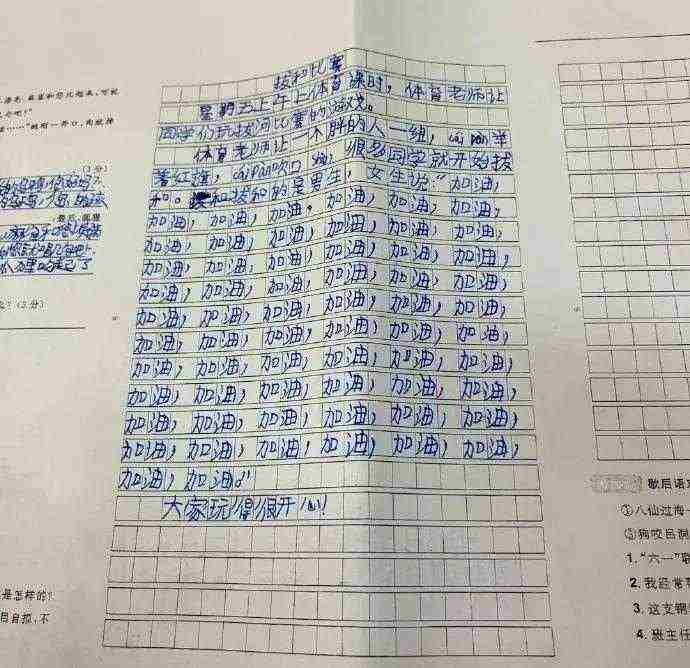 拔和比赛
星期五上午上体育课时，体育老师让
同学们玩拔河比赛的游戏。
体育老师让一个胖的人一组，cái pàn举
着红旗，cái pàn吹口shào，很多同学就开始拔
和。和拔和的是男生，女生说："加油，
加油，加油，加油。加油，加油，加油，
加油，加油，加油，加油，加油，加油，
加油，加油，加油，加油，加油，加油，
加油，加油，加油，加油，加油，加油，
加油，加油，加油，加油，加油，加油，
加油，加油，加油，加油，加油，加油，
加油，加油，加油，加油，加油，加油，
加油，加油，加油，加油，加油，加油，
加油，加油，加油，加油，加油，加油，
加油，加油，加油，加油，加油，加油，
加油，加油。"
大家玩得很开心！
(3分)
？(3分)
是怎样的？
目自掘，不
歇后语
①八仙过海
③狗咬吕洞
1.“六一”
2.我经常
3.这支钢
4.班主任